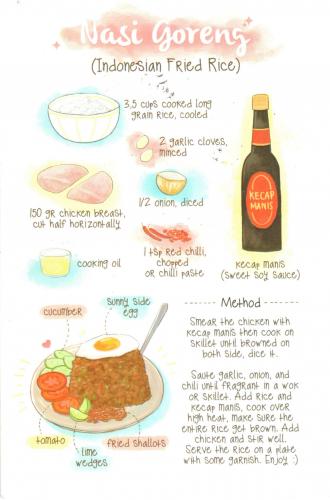 Nasi Goreng
(Indonesian Fried Rice)
3,5 cups cooked long
grain rice, cooled
2 garlic cloves,
minced
1/2 onion, diced
150 gr chicken breast,
cut half horizontally
1 tsp red chilli,
chopped
or chilli paste
cooking oil
KECAP
MANIS
kecap manis
(sweet soy sauce)
cucumber
sunny side
egg
tomato
lime
wedges
fried shallots
Method
Smear the chicken with
kecap manis then cook on
skillet until browned on
both side, dice it.
Saute garlic, onion, and
chili until fragrant in a wok
or skillet. Add rice and
kecap manis, cook over
high heat, make sure the
entire rice get brown. Add
chicken and stir well.
Serve the rice on a plate
with some garnish. Enjoy :)